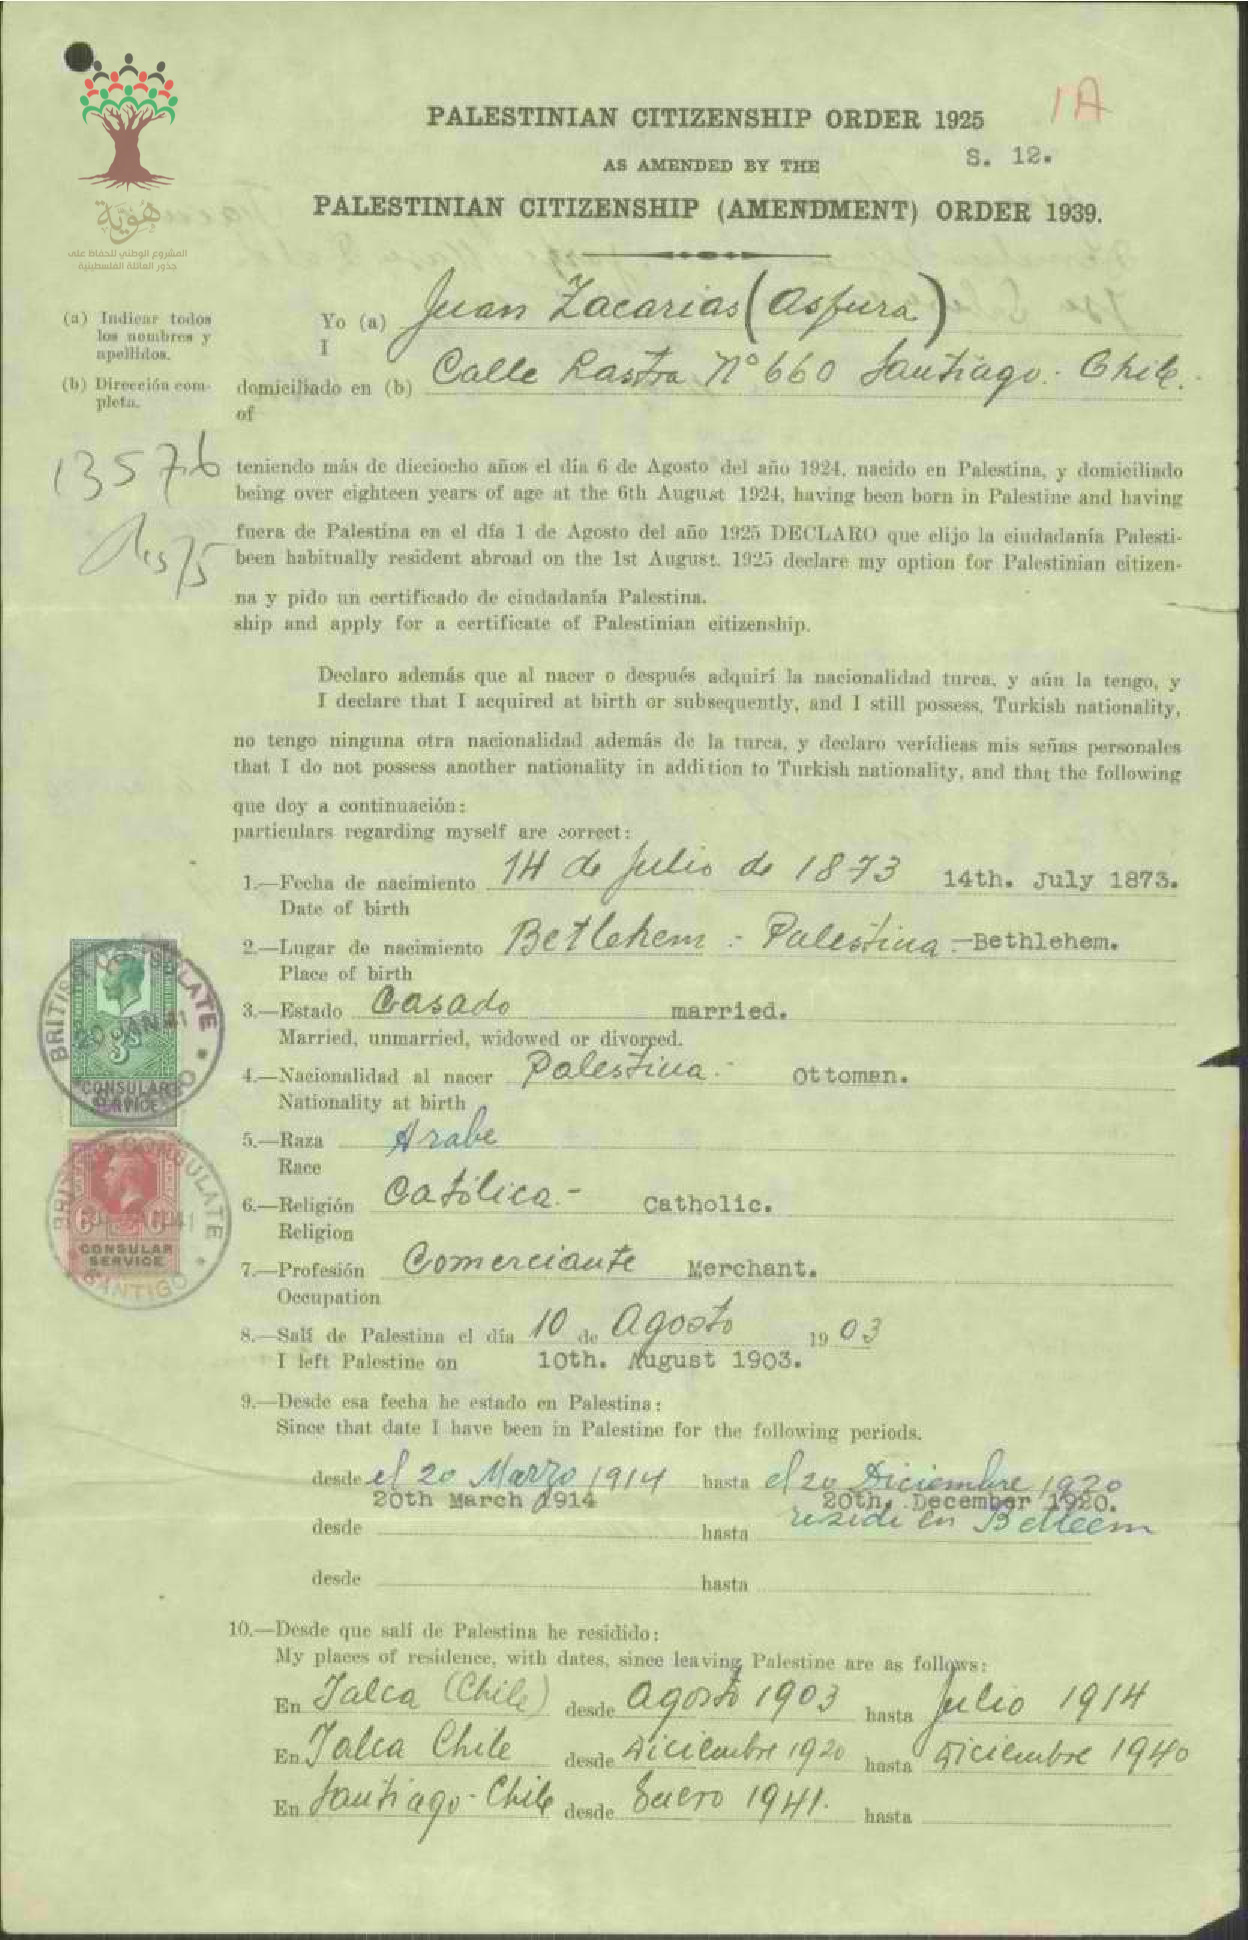 1A
PALESTINIAN CITIZENSHIP ORDER 1925
S. 12.
AS AMENDED BY THE
PALESTINIAN CITIZENSHIP (AMENDMENT) ORDER 1939.
هوية
المشروع الوطني للحفاظ على
جذور العائلة الفلسطينية
(a) Indicar todos
los nombres y
apellidos.
Yo (a) Juan Zacarias (Asfura)
I
(b) Dirección com-
pleta.
domiciliado en (b) Calle Lastra Nº 660 Santiago - Chile.
of
13576
teniendo más de dieciocho años el día 6 de Agosto del año 1924, nacido en Palestina, y domiciliado
being over eighteen years of age at the 6th August 1924, having been born in Palestine and having
fuera de Palestina en el día 1 de Agosto del año 1925 DECLARO que elijo la ciudadanía Palesti-
been habitually resident abroad on the 1st August. 1925 declare my option for Palestinian citizen-
na y pido un certificado de ciudadanía Palestina.
ship and apply for a certificate of Palestinian citizenship.
Declaro además que al nacer o después adquirí la nacionalidad turca, y aún la tengo, y
I declare that I acquired at birth or subsequently, and I still possess, Turkish nationality,
no tengo ninguna otra nacionalidad además de la turca, y declaro verídicas mis señas personales
that I do not possess another nationality in addition to Turkish nationality, and that the following
que doy a continuación:
particulars regarding myself are correct:
1.—Fecha de nacimiento 14 de Julio de 1873 14th. July 1873.
Date of birth
2.—Lugar de nacimiento Betlehem - Palestina -Bethlehem.
Place of birth
3.—Estado Casado married.
Married, unmarried, widowed or divorced.
4.—Nacionalidad al nacer Palestina.- Ottoman.
Nationality at birth
5.—Raza Arabe
Race
6.—Religión Católica.- Catholic.
Religion
7.—Profesión Comerciante Merchant.
Occupation
8.—Salí de Palestina el día 10 de Agosto 1903
I left Palestine on 10th. August 1903.
9.—Desde esa fecha he estado en Palestina:
Since that date I have been in Palestine for the following periods.
desde el 20 Marzo 1914 hasta el 20 Diciembre 1920
20th March 1914 20th. December 1920.
desde hasta residi en Belleem
desde hasta
10.—Desde que salí de Palestina he residido:
My places of residence, with dates, since leaving Palestine are as follows:
En Talca (Chile) desde Agosto 1903 hasta Julio 1914
En Talca Chile desde Diciembre 1920 hasta Diciembre 1940
En Santiago - Chile desde Enero 1941. hasta
BRITISH CONSULATE
20 JAN 41
3s
CONSULAR
SERVICE
BRITISH CONSULATE
6 6
CONSULAR
SERVICE
SANTIGO